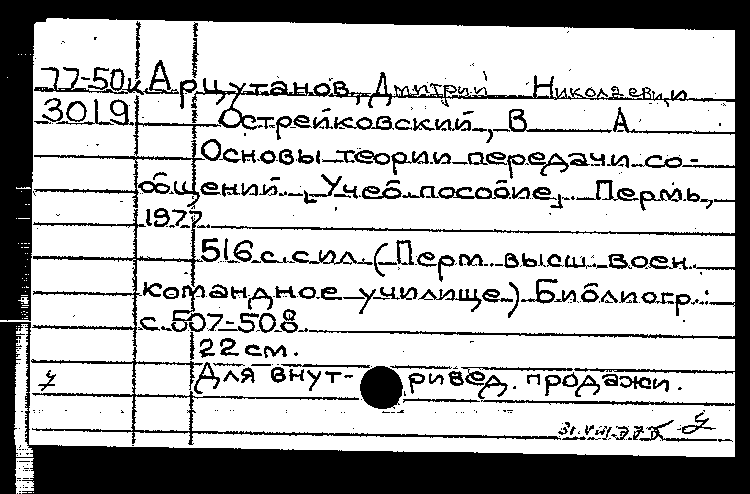 77-50к Арцутанов, Дмитрий Николаевич и
3019 Острейковский, В А
Основы теории передачи со-
общений. [Учеб. пособие]. Пермь,
1977
516 с. с ил. (Перм. высш. воен.
командное училище) Библиогр.:
с. 507-508
22 см.
Для внут- ривед. продажи.
31.VIII.77